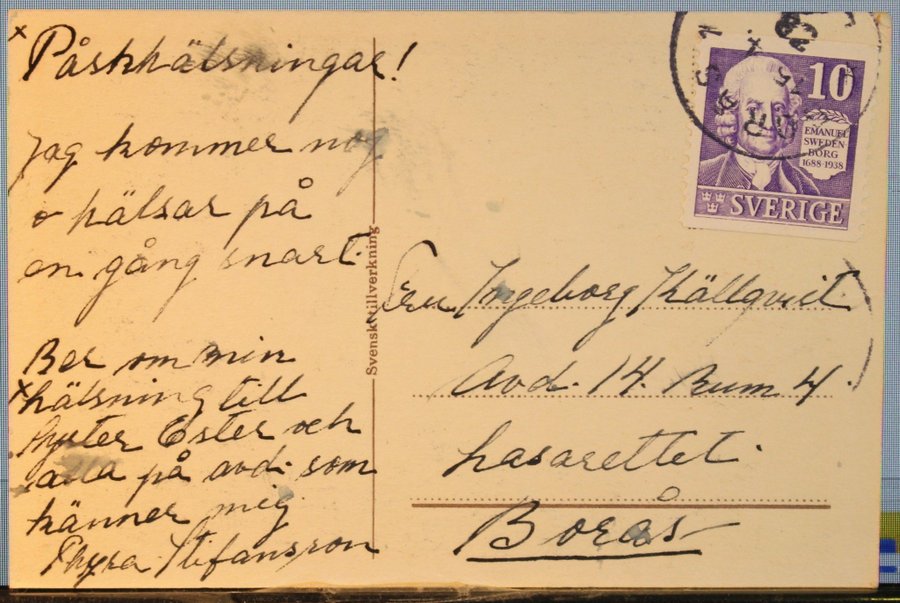 Påskhälsningar!
Jag kommer nog
o hälsar på
en gång snart.
Ber om min
hälsning till
Syster Ester och
alla på avd. som
känner mig
Thyra Stefansson
Svensk tillverkning
10
EMANUEL
SWEDEN
BORG
1688-1938
SVERIGE
Fru Ingeborg Källqvist
Avd. 14. Rum 4.
Lasarettet.
Borås